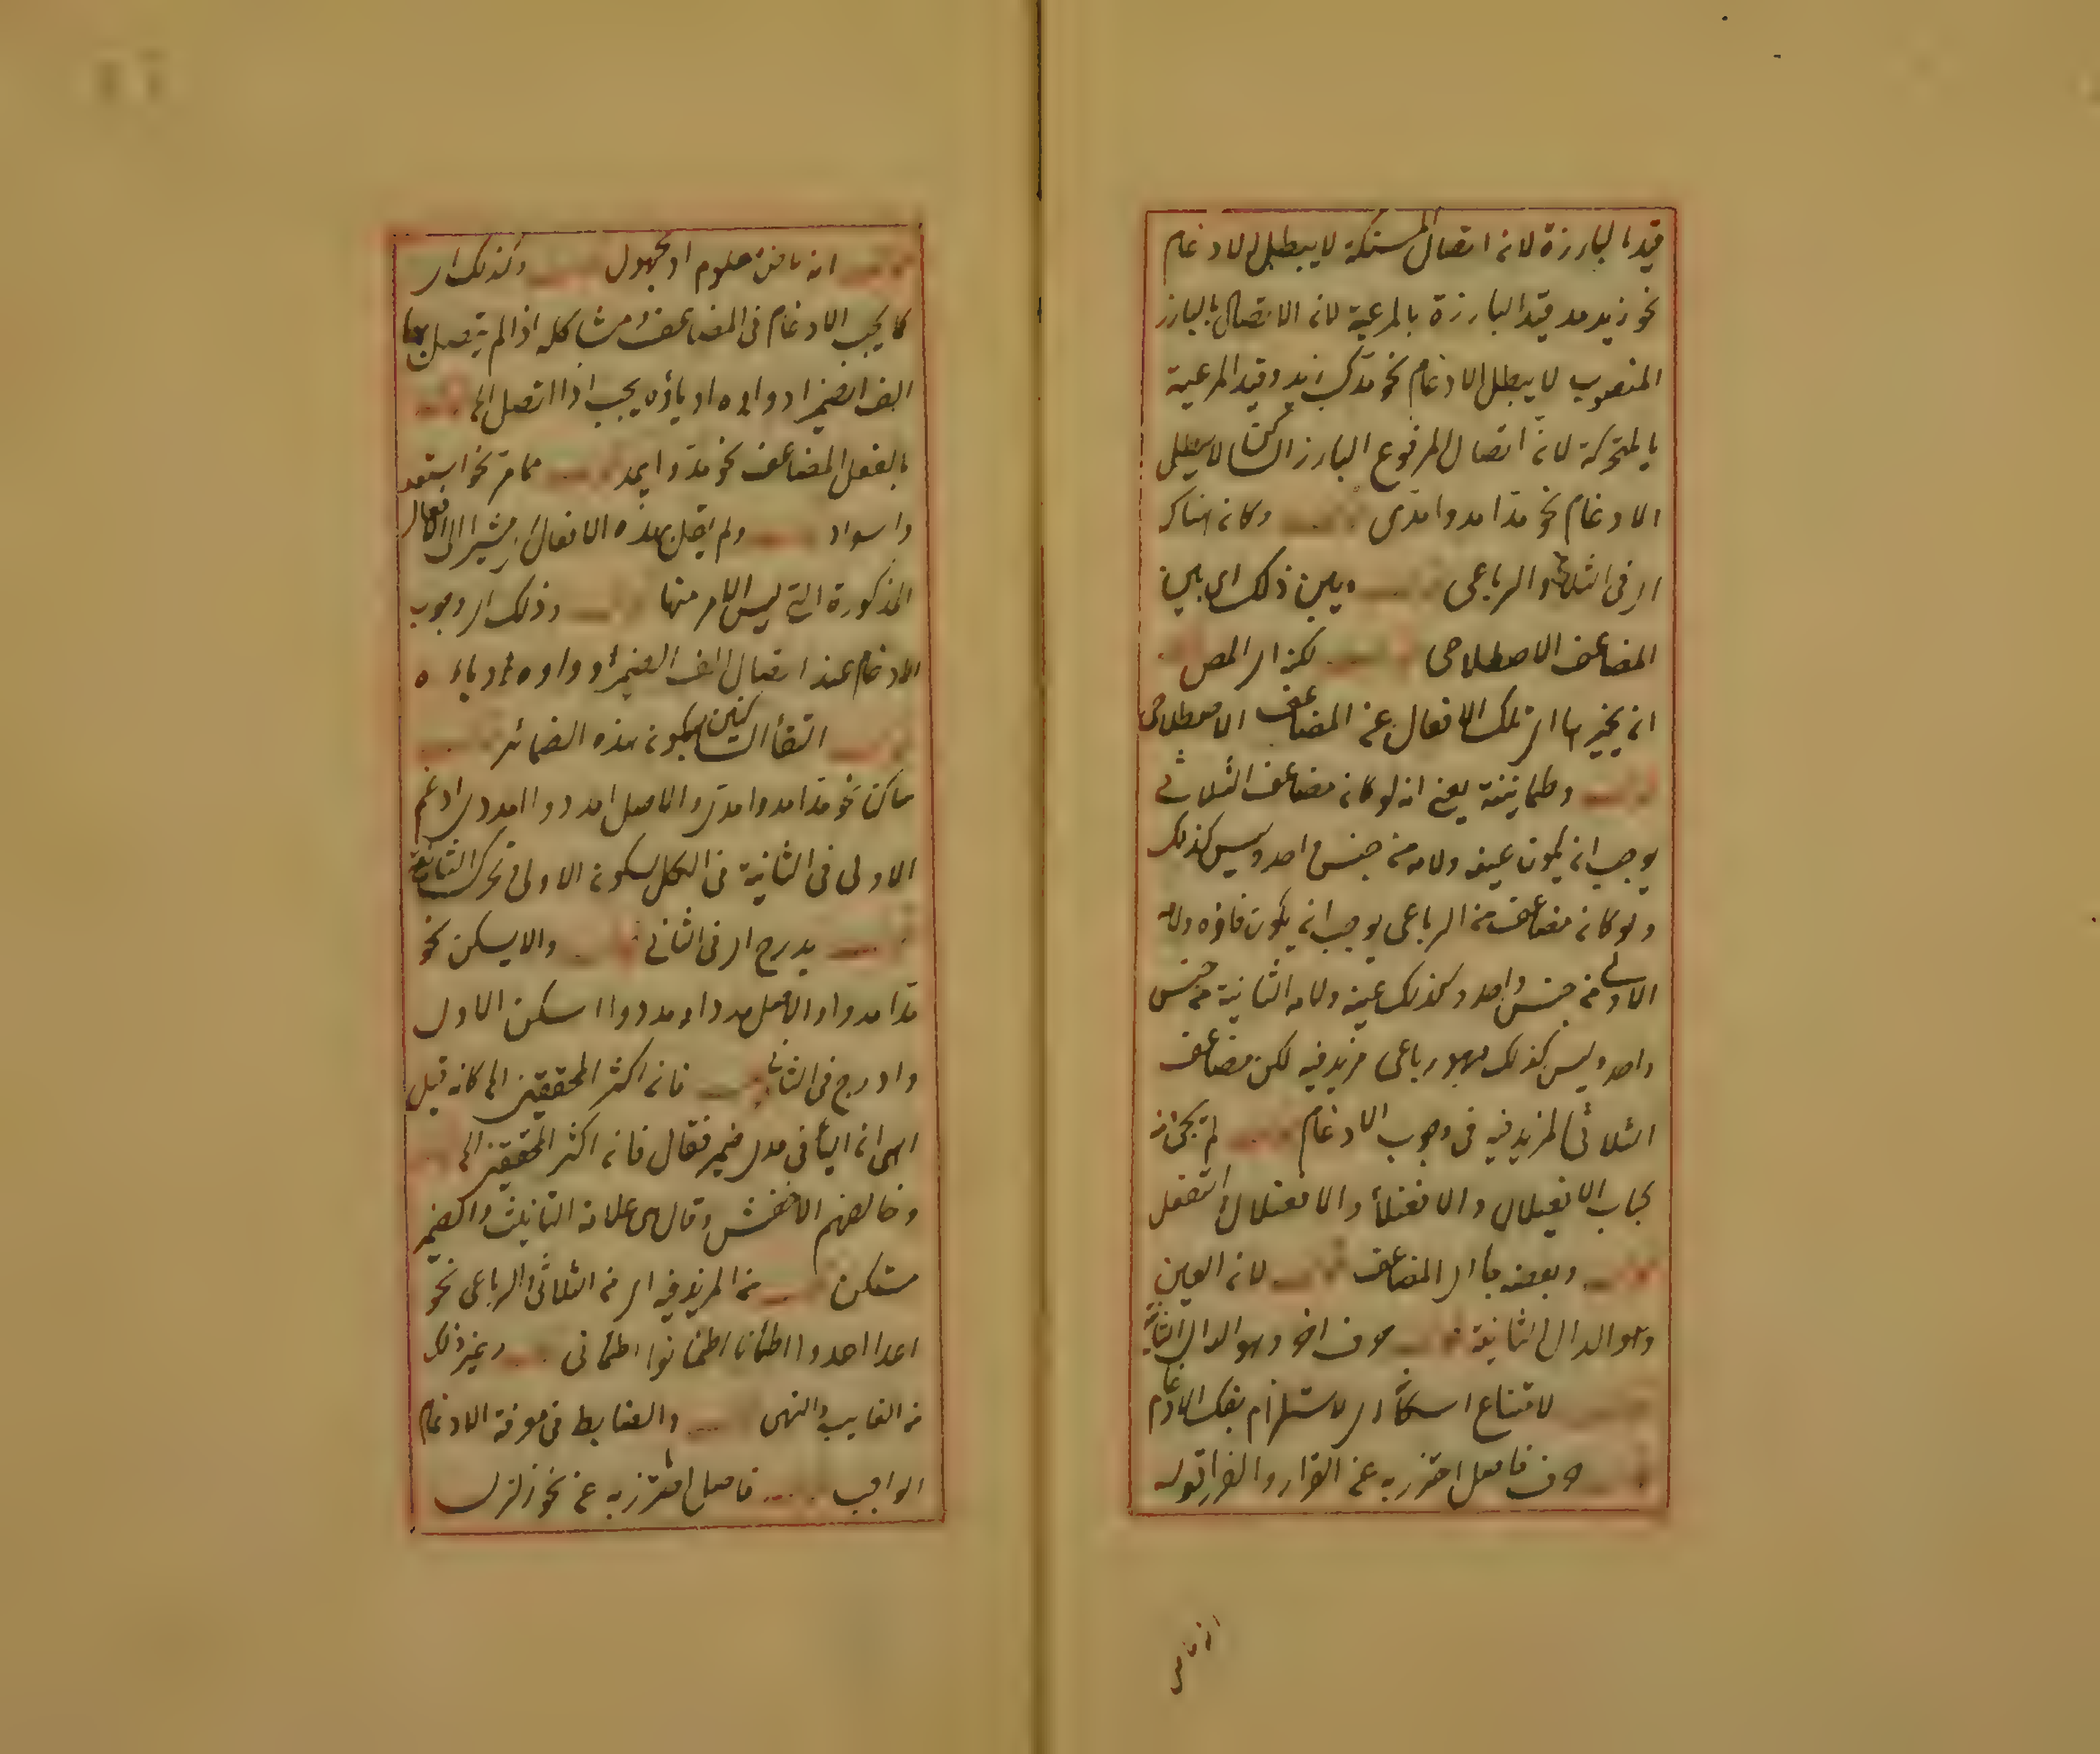 قيد بالبارزة لانه اتصال المستكنة لا يبطل الادغام
نحو زيد مد قيد البارزة بالمرعية لانه الاتصال بالبارز
المنصوب لا يبطل الادغام نحو مدك زيد وقيد المرعية
بالمتحركة لانه اتصال المرفوع البارز الساكن لا يبطل
الادغام نحو مدا مدوا مدى وكانه هناك
اى فى الثلاثى والرباعى وبين ذلك اى بين
المضاعف الاصطلاحى لكنه اى المص
انه يخبر اى تلك الافعال عن المضاعف الاصطلاحى
وطمانينة يعنى انه لو كانه مضاعف الثلاثى
يوجب انه يكون عينه ولامه من جنس واحد وليس كذلك
ولو كانه مضاعف من الرباعى يوجب انه يكون فاؤه ولامه
الاولى من جنس واحد وكذلك عينه ولامه الثانية من جنس
واحد وليس كذلك فهو رباعى مزيد فيه لكن مضاعف
الثلاثى المزيد فيه فى وجوب الادغام لم يجئ من
باب الافعيلال والانفعال والافعلال والتفعل
وبعضه اى المضاعف لانه العين
وهو الدال الثانية حرف اخر وهو الدال الثانية
لامتناع اسكانه اى لاستلزام بفك الادغام
حرف فاصل احترز به عن القرار والفرار قوله
انه ماض معلوم او مجهول وكذلك اى
كما يجب الادغام فى المضاعف ومشاكله اذا لم يتصل بها
الف الضمير او واوه او ياؤه يجب اذا اتصل الى
بالفعل المضاعف نحو مد وايد مما مر نحو استعد
واسواد ولم يقل هذه الافعال مشيرا الى الافعال
المذكورة التى ليس الامر منها وذلك اى وجوب
الادغام عند اتصال الف الضمير او واوه او ياءه
التقاء الساكنين يكون هذه الضمائر
ساكن نحو مدا مدوا مدى والاصل امددوا امددى ادغم
الاولى فى الثانية فى الكل لسكونه الاولى وتحرك الثانية
يدرج اى فى الثانى والا يسكن نحو
مدا مدوا والاصل مددا ومددوا اسكن الاول
وادرج فى الثانى فانه اكثر المحققين الى كانه قيل
اى انه الياء فى مدى ضمير فقال فانه اكثر المحققين الى
وخالفهم الاخفش وقال هى علامة التانيث والضمير
مستكن من المزيد فيه اى من الثلاثى والرباعى نحو
اعدا اعدوا اطمأنا اطمأنوا اطمأنى وغير ذلك
من الغايب والنهى والضابط فى معرفة الادغام
الواجب فاصل احترز به عن نحو زلزل